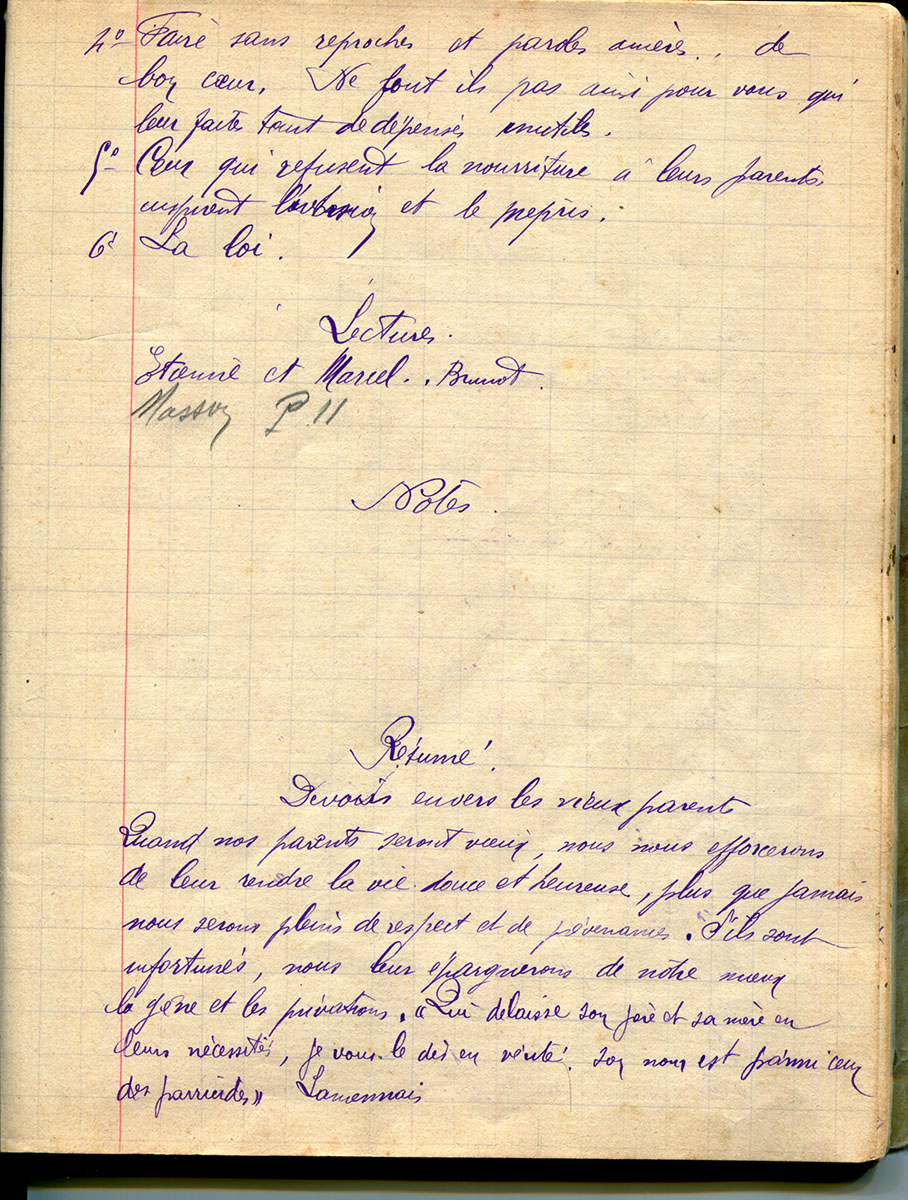 4° Faire sans reproches et paroles amères.. de
bon cœur. Ne font ils pas ainsi pour vous qui
leur faites tant de dépenses inutiles.
5° Ceux qui refusent la nourriture à leurs parents
inspirent l'aversion et le mépris.
6° La loi.
Lectures.
Etienne et Marcel.. Brunot.
Masson P. 11
Notes.
Résumé.
Devoirs envers les vieux parents
Quand nos parents seront vieux, nous nous efforcerons
de leur rendre la vie douce et heureuse, plus que jamais
nous serons pleins de respect et de prévenances. S'ils sont
infortunés, nous leur épargnerons de notre mieux
la gêne et les privations. "Qui délaisse son père et sa mère en
leurs nécessités, je vous le dis en vérité. son nom est parmi ceux
des parricides" Lamennais